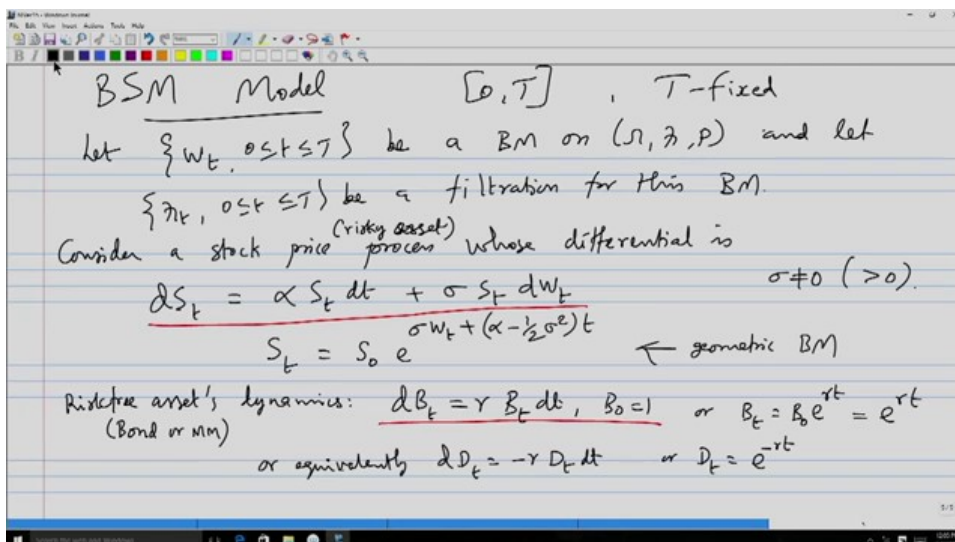 File Edit View Insert Actions Tools Help
B I
BSM Model [0,T] , T-fixed
Let {W_t, 0≤t≤T} be a BM on (Ω, ℱ, P) and let
{ℱ_t, 0≤t≤T} be a filtration for this BM.
(risky asset)
Consider a stock price process whose differential is
dS_t = α S_t dt + σ S_t dW_t σ≠0 (>0).
S_t = S_0 e^{σW_t + (α - ½σ²)t} ← geometric BM
Riskfree asset's dynamics: dB_t = r B_t dt, B_0=1 or B_t = B_0 e^{rt} = e^{rt}
(Bond or MM)
or equivalently dD_t = -r D_t dt or D_t = e^{-rt}
5/5